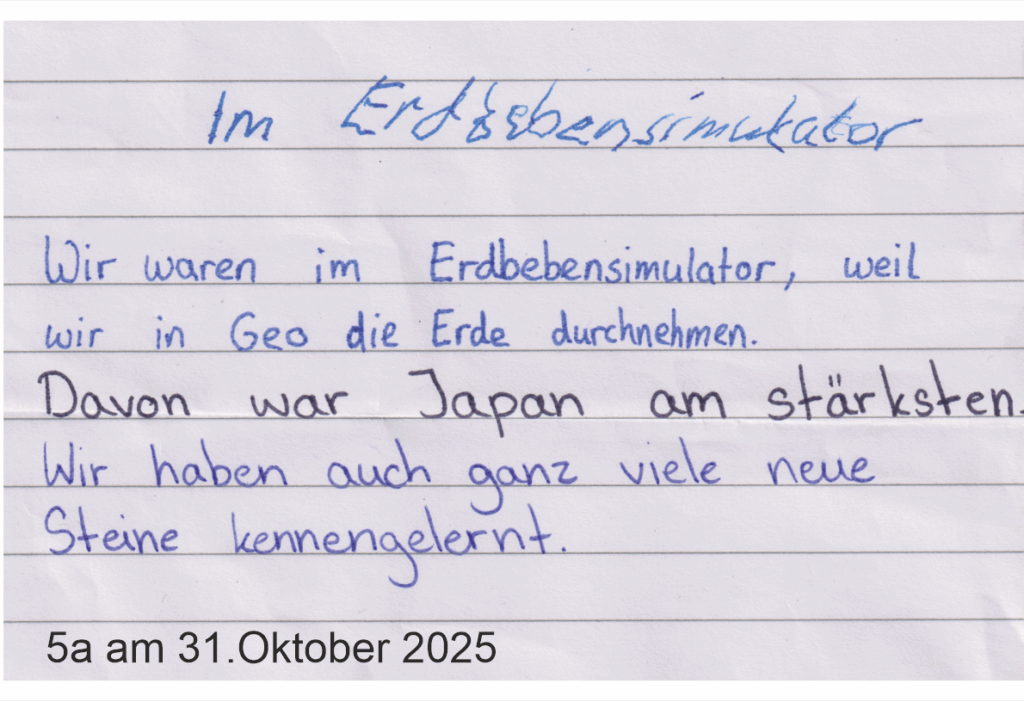 Im Erdbebensimulator
Wir waren im Erdbebensimulator, weil
wir in Geo die Erde durchnehmen.
Davon war Japan am stärksten.
Wir haben auch ganz viele neue
Steine kennengelernt.
5a am 31.Oktober 2025